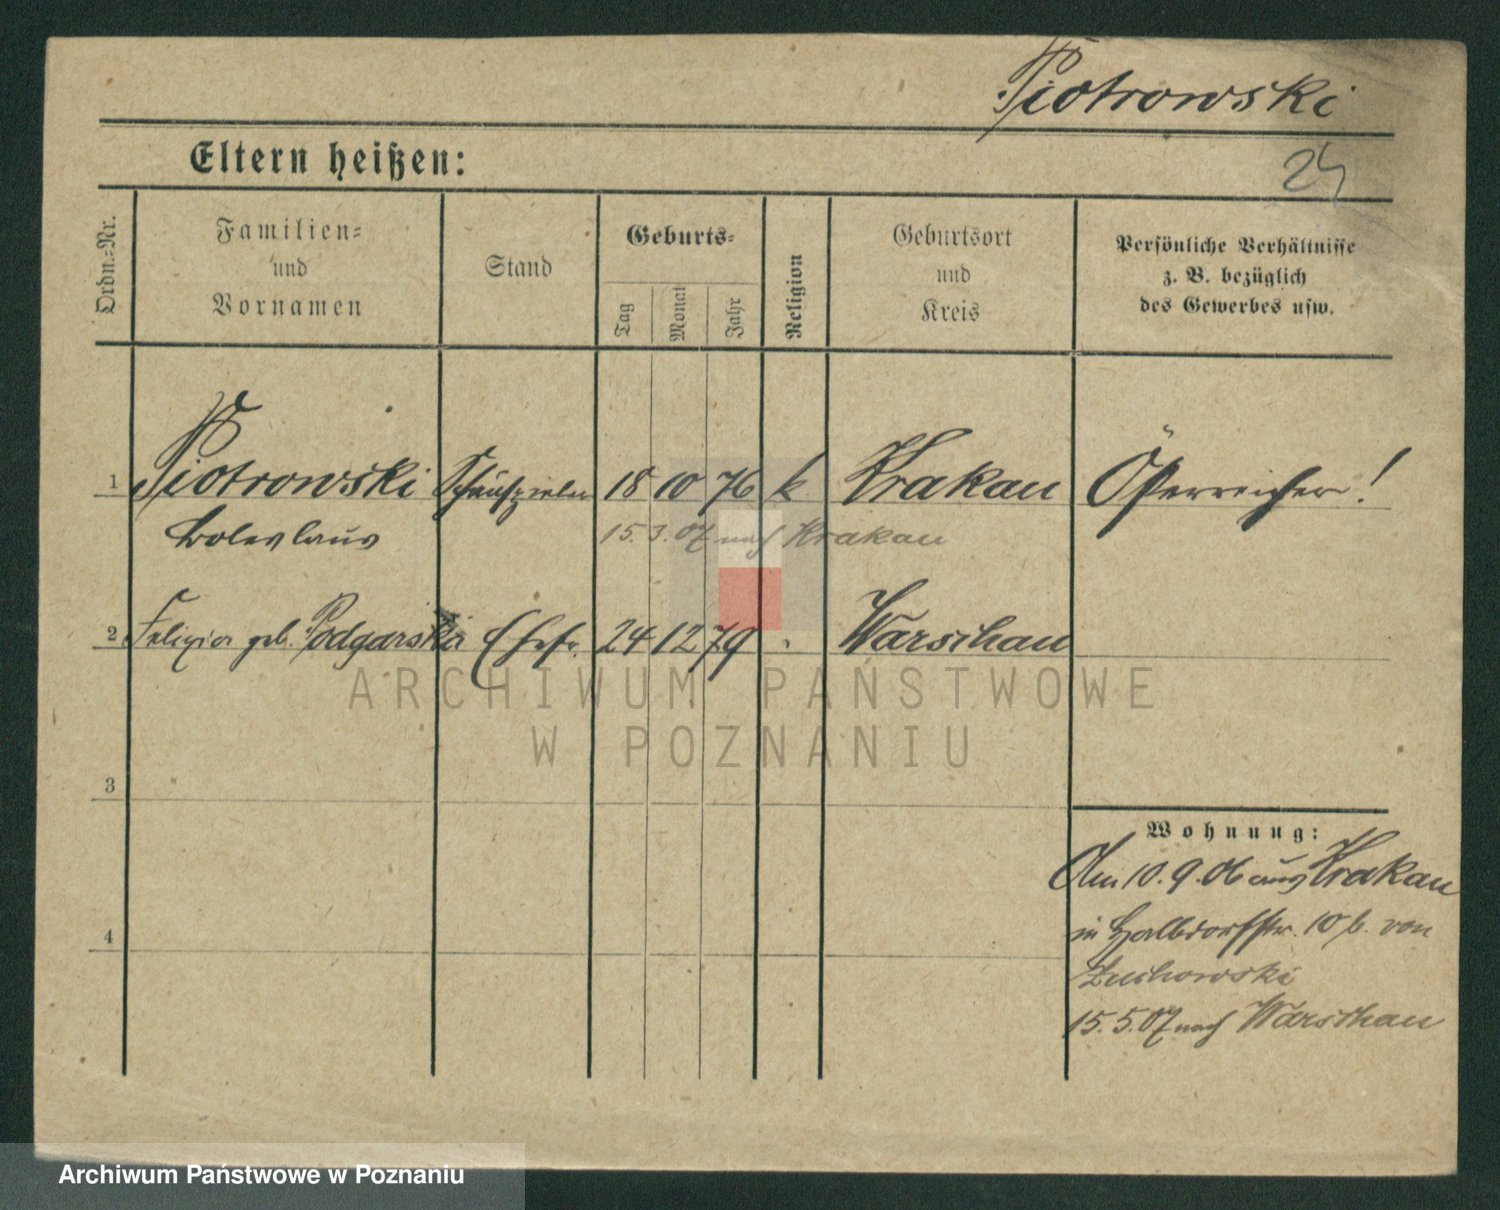 Piotrowski
Eltern heißen:
24
Ordn.-Nr.
Familien-
und
Vornamen
Stand
Geburts-
Tag
Monat
Jahr
Religion
Geburtsort
und
Kreis
Persönliche Verhältnisse
z. B. bezüglich
des Gewerbes usw.
1 Piotrowski Schauspieler 18 10 76 k. Krakau Österreicher!
Boleslaus 15.3.07 nach Krakau
2 Felixia geb. Podgarska Ehefr. 24 12 79 " Warschau
ARCHIWUM PAŃSTWOWE
W POZNANIU
3
Wohnung:
Am 10.9.06 aus Krakau
4
in Halbdorfstr. 10 b. von
Zuchowski
15.5.07 nach Warschau
Archiwum Państwowe w Poznaniu